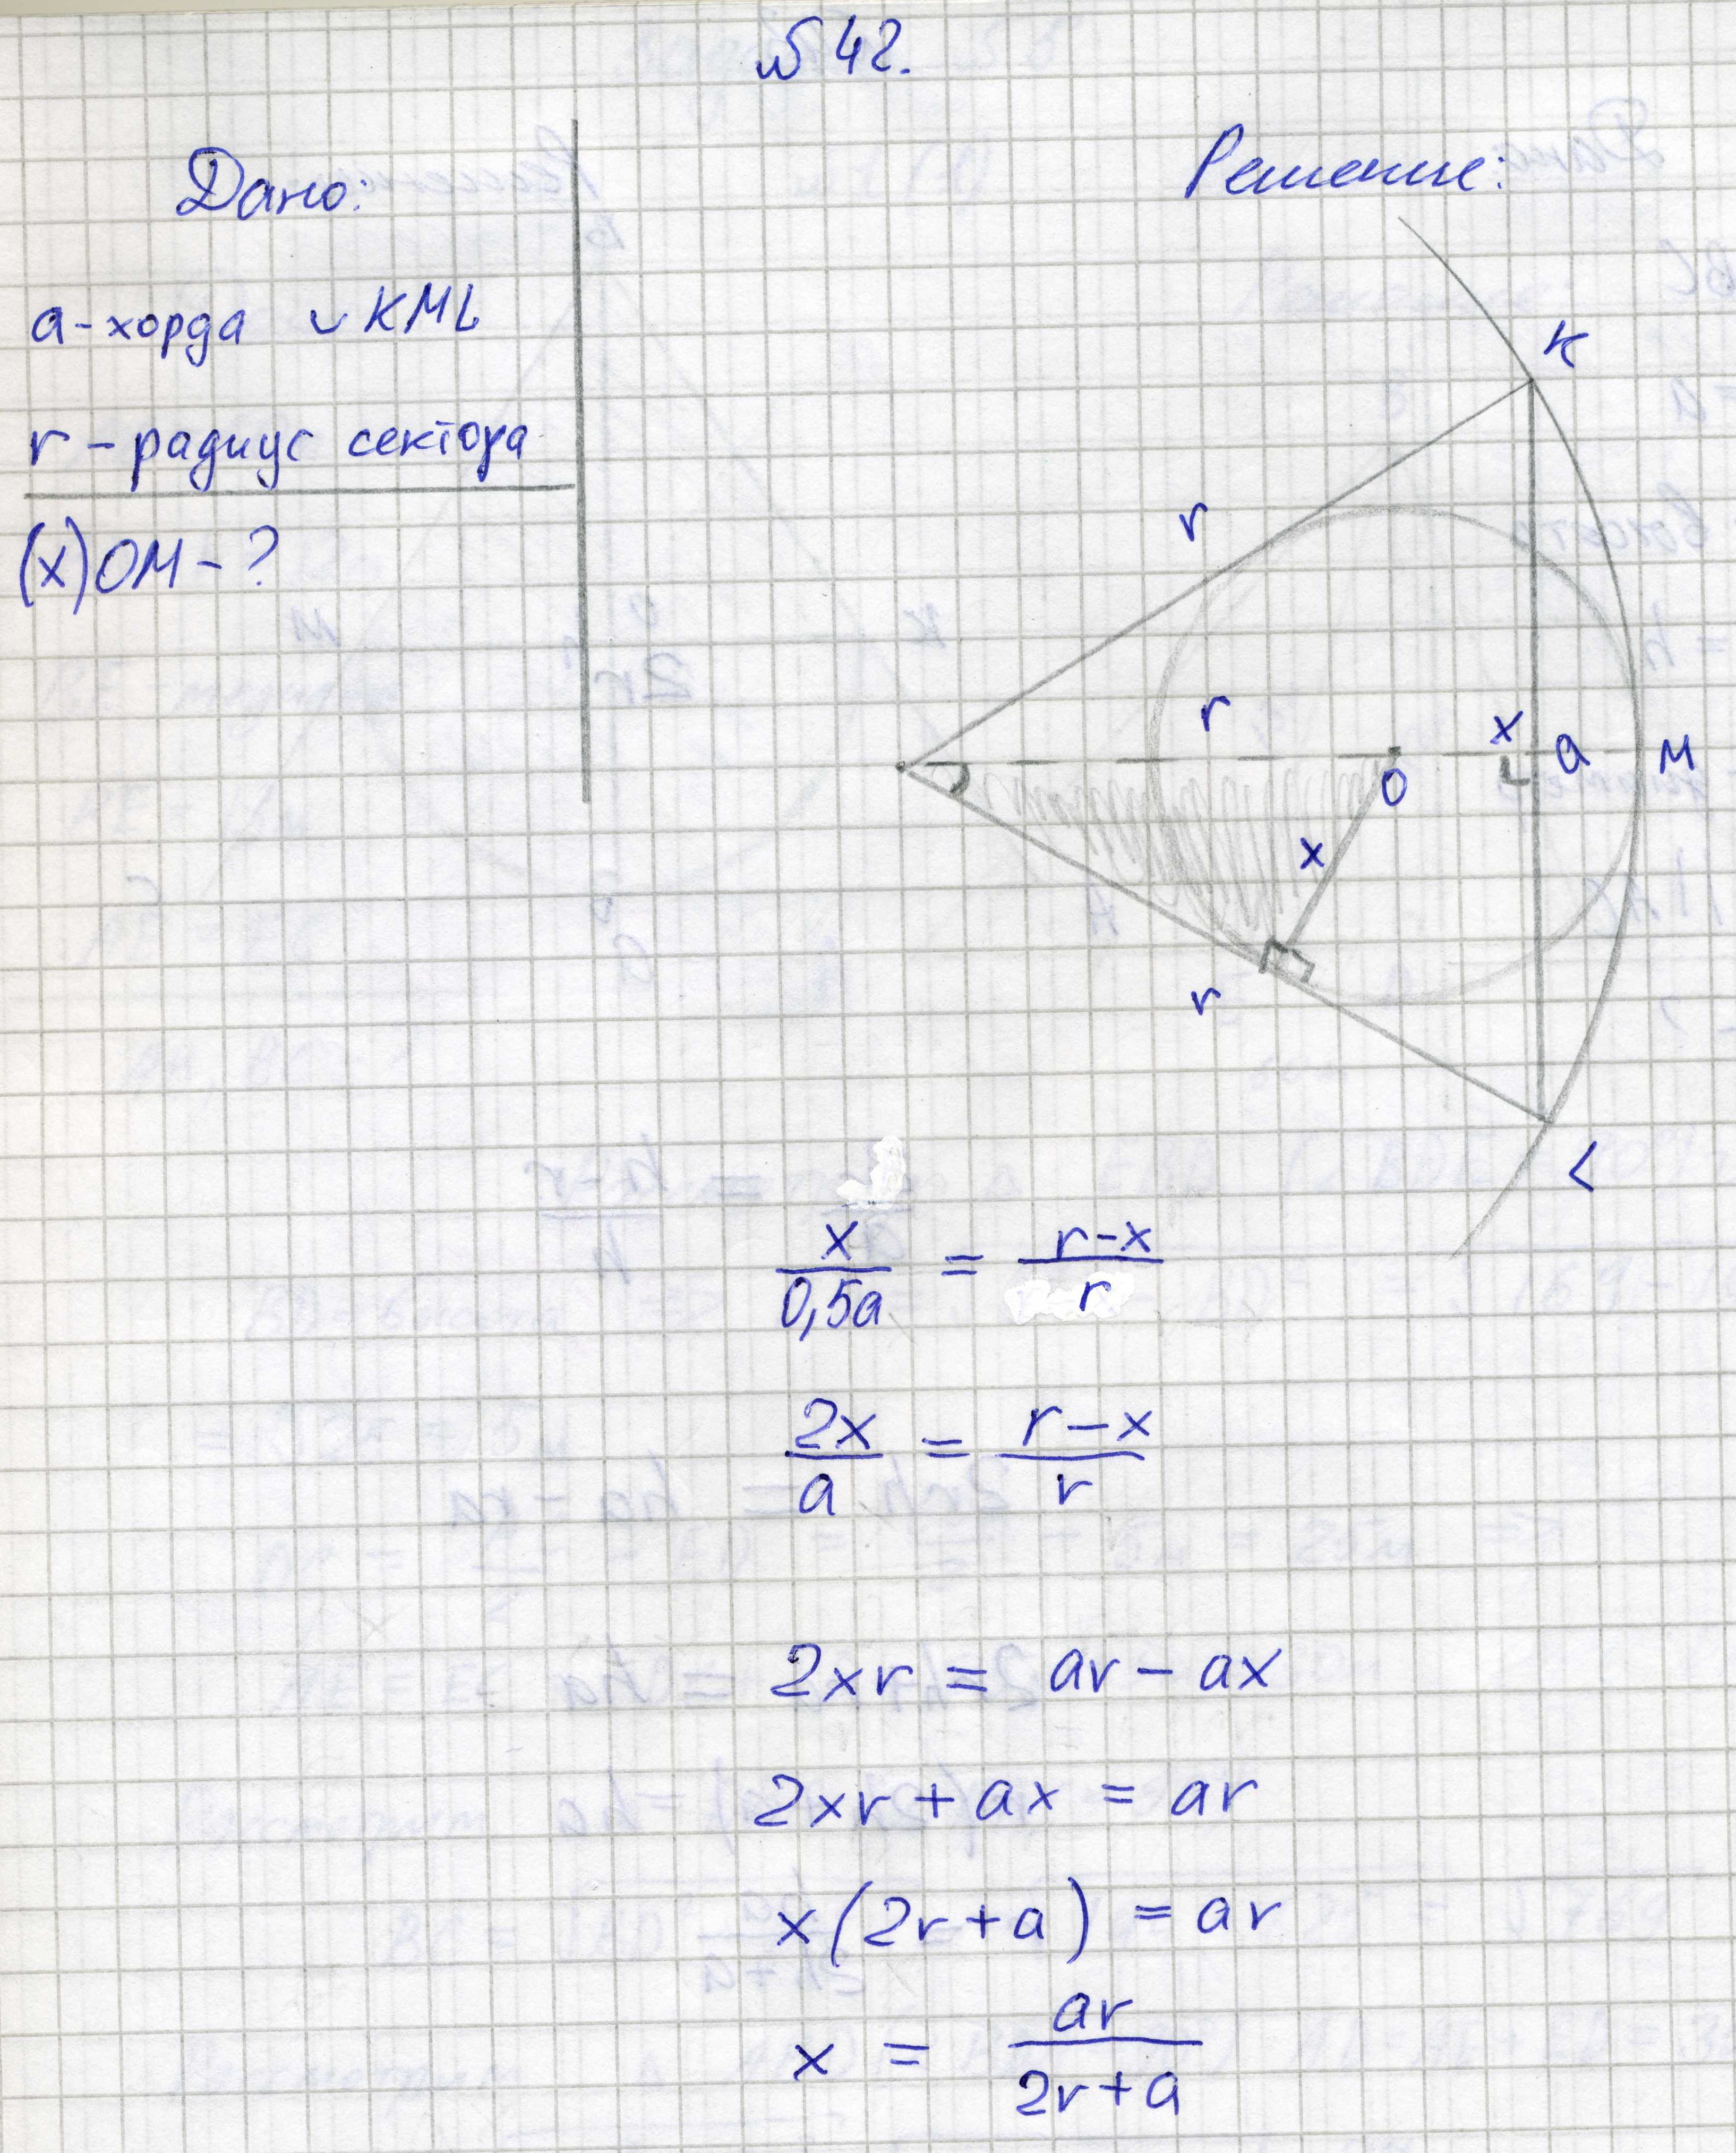 № 42.
Дано:
a - хорда ◡ KML
r - радиус сектора
(x) OM - ?
Решение:
K
r
r
x
a
M
O
x
r
L
x/0,5a = r-x/r
2x/a = r-x/r
2xr = ar - ax
2xr + ax = ar
x(2r+a) = ar
x = ar/2r+a